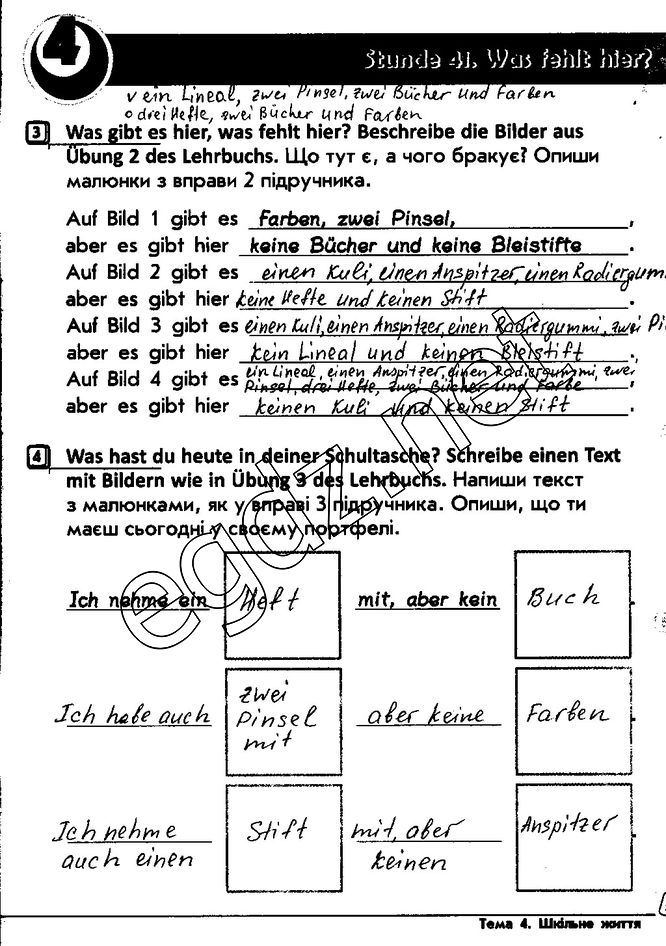 4
Stunde 41. Was fehlt hier?
v ein Lineal, zwei Pinsel, zwei Bücher und Farben
o drei Hefte, zwei Bücher und Farben
3 Was gibt es hier, was fehlt hier? Beschreibe die Bilder aus
Übung 2 des Lehrbuchs. Що тут є, а чого бракує? Опиши
малюнки з вправи 2 підручника.
Auf Bild 1 gibt es Farben, zwei Pinsel, ,
aber es gibt hier keine Bücher und keine Bleistifte .
Auf Bild 2 gibt es einen Kuli, einen Anspitzer, einen Radiergum
aber es gibt hier keine Hefte und keinen Stift .
Auf Bild 3 gibt es einen Kuli, einen Anspitzer, einen Radiergummi, zwei Pi
aber es gibt hier kein Lineal und keinen Bleistift .
ein Lineal, einen Anspitzer, einen Radiergummi, zwei
Auf Bild 4 gibt es Pinsel, drei Hefte, zwei Bücher und Farbe ,
aber es gibt hier keinen Kuli und keinen Stift .
4 Was hast du heute in deiner Schultasche? Schreibe einen Text
mit Bildern wie in Übung 3 des Lehrbuchs. Напиши текст
з малюнками, як у вправі 3 підручника. Опиши, що ти
маєш сьогодні у своєму портфелі.
Ich nehme ein Heft mit, aber kein Buch .
Ich habe auch zwei Pinsel mit aber keine Farben .
Ich nehme auch einen Stift mit, aber keinen Anspitzer .
egdz.net
Тема 4. Шкільне життя